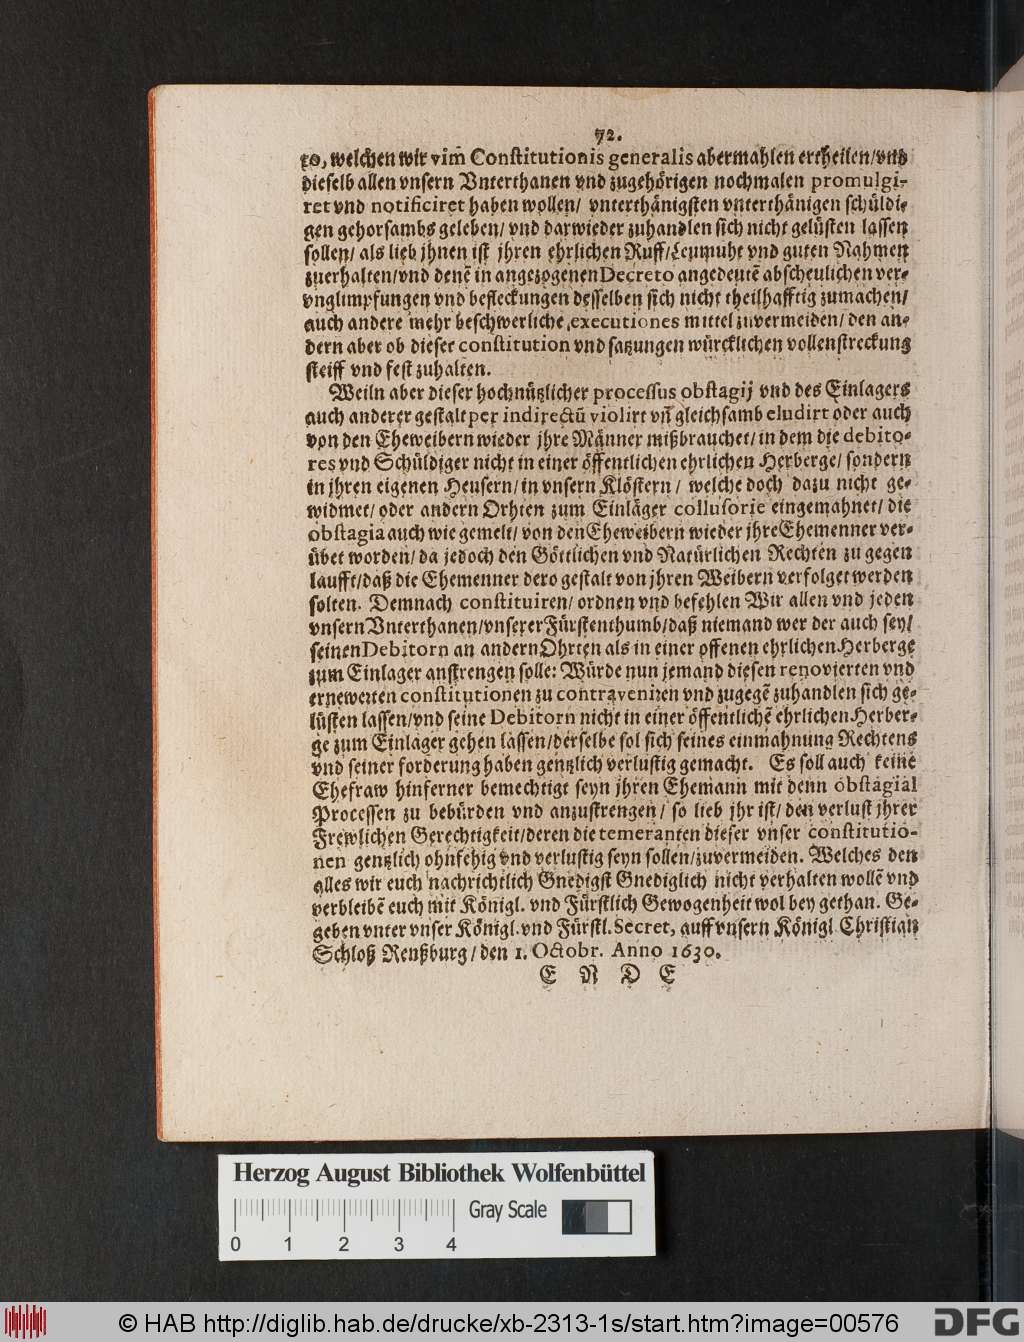 72.
to, welchen wir vim̃ Constitutionis generalis abermahlen ertheilen/vnd
dieselb allen vnsern Vnterthanen vnd zugehörigen nochmalen promulgi-
ret vnd notificiret haben wollen/ vnterthänigsten vnterthänigen schüldi-
gen gehorsambs geleben/ vnd darwieder zuhandlen sich nicht gelüsten lassen
sollen/ als lieb jhnen ist jhren ehrlichen Ruff/Leumuht vnd guten Nahmen
zuerhalten/vnd denē in angezogenen Decreto angedeutē abscheulichen ver-
vnglimpfungen vnd befleckungen desselben sich nicht theilhafftig zumachen/
auch andere mehr beschwerliche executiones mittel zuvermeiden/ den an-
dern aber ob dieser constitution vnd satzungen würcklichen vollenstreckung
steiff vnd fest zuhalten.
Weiln aber dieser hochnützlicher processus obstagij vnd des Einlagers
auch anderer gestalt per indirectū violirt vñ gleichsamb eludirt oder auch
von den Eheweibern wieder jhre Männer mißbrauchet/ in dem die debito-
res vnd Schüldiger nicht in einer öffentlichen ehrlichen Herberge/ sondern
in jhren eigenen Heusern/ in vnsern Klöstern / welche doch dazu nicht ge-
widmet/ oder andern Orhten zum Einläger collusorie eingemahnet/ die
obstagia auch wie gemelt/ von den Eheweibern wieder jhre Ehemenner ver-
übet worden/ da jedoch den Göttlichen vnd Natürlichen Rechten zu gegen
laufft/daß die Ehemenner dero gestalt von jhren Weibern verfolget werden
solten. Demnach constituiren/ ordnen vnd befehlen Wir allen vnd jeden
vnsern Vnterthanen/vnserer Fürstenthumb/daß niemand wer der auch sey/
seinen Debitorn an andern Ohrten als in einer offenen ehrlichen Herberge
zum Einlager anstrengen solle: Würde nun jemand diesen renovierten vnd
ernewerten constitutionen zu contravenizen vnd zugegē zuhandlen sich ge-
lüsten lassen/vnd seine Debitorn nicht in einer öffentlichē ehrlichen Herber-
ge zum Einlager gehen lassen/derselbe sol sich seines einmahnung Rechtens
vnd seiner forderung haben gentzlich verlustig gemacht. Es soll auch keine
Ehefraw hinferner bemechtigt seyn jhren Ehemann mit denn obstagial
Processen zu bebürden vnd anzustrengen/ so lieb jhr ist/ den verlust jhrer
Frewlichen Gerechtigkeit/deren die temeranten dieser vnser constitutio-
nen gentzlich ohnfehig vnd verlustig seyn sollen/zuvermeiden. Welches den
alles wir euch nachrichtlich Gnedigst Gnediglich nicht verhalten wollē vnd
verbleibē euch mit Königl. vnd Fürstlich Gewogenheit wol bey gethan. Ge-
geben vnter vnser Königl. vnd Fürstl. Secret, auff vnsern Königl Christian
Schloß Renßburg/ den 1. Octobr. Anno 1630.
E N D E
Herzog August Bibliothek Wolfenbüttel
Gray Scale
0 1 2 3 4
© HAB http://diglib.hab.de/drucke/xb-2313-1s/start.htm?image=00576
DFG